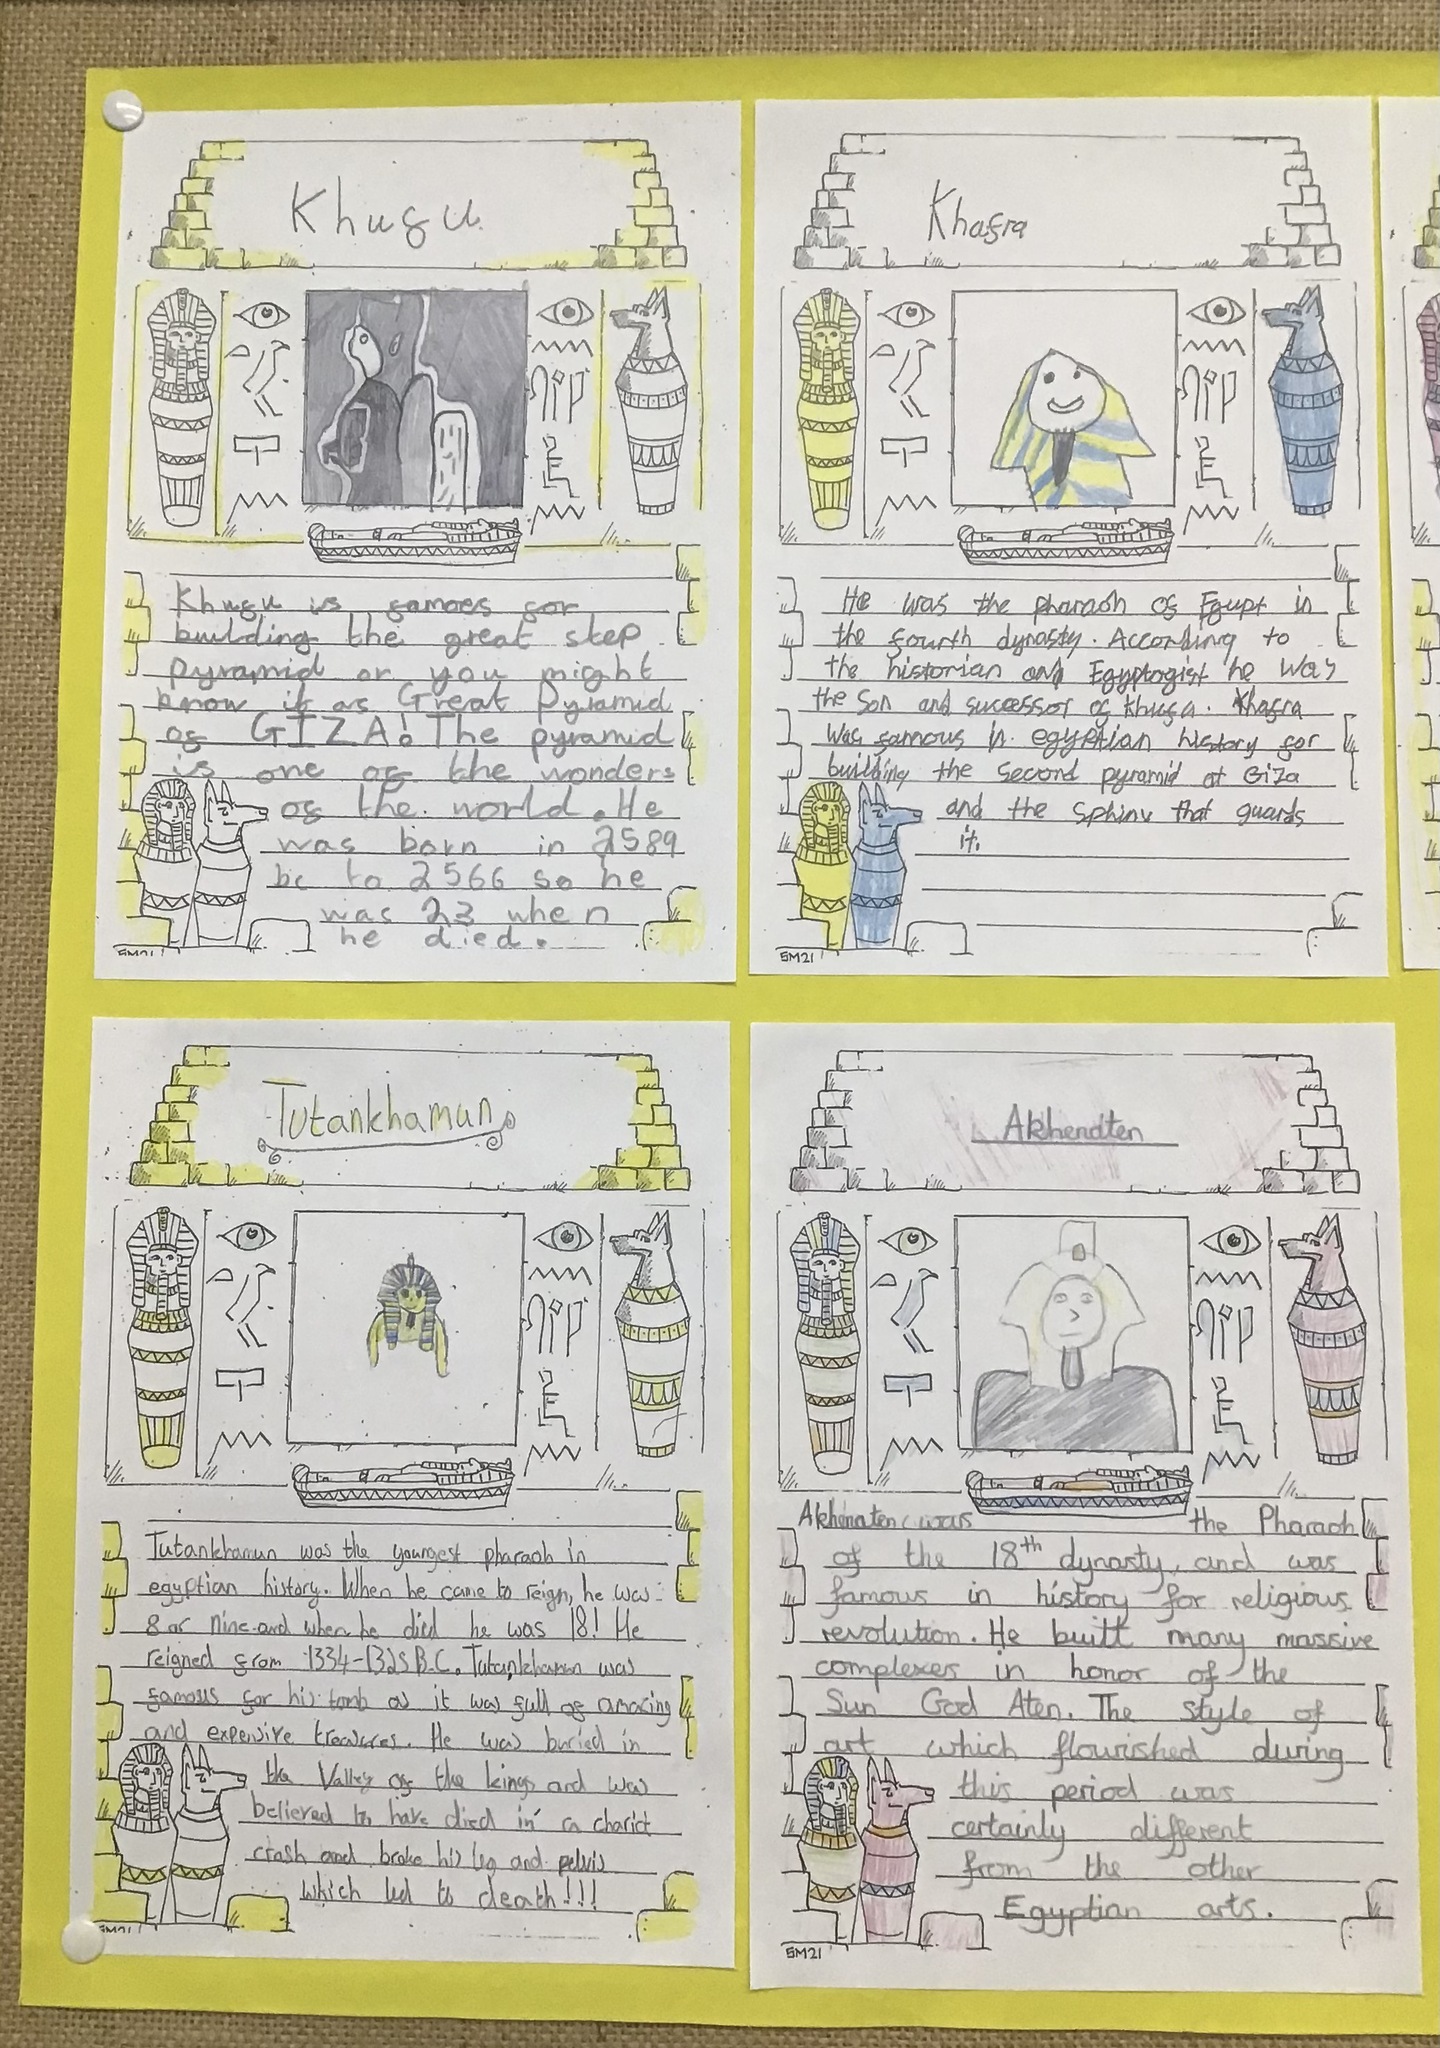 Khufu
Khufu is famoes for
building the great step
pyramid or you might
know it as Great Pyramid
of GIZA! The pyramid
is one of the wonders
of the world. He
was born in 2589
bc to 2566 so he
was 23 when
he died.
SM21
Khafra
He was the pharaoh of Egupt in
the fourth dynasty. According to
the historian and Egyptogist he was
the son and successor of Khufu. Khafra
was famous in egyptian history for
building the second pyramid at Giza
and the Sphinx that guards
it.
SM21
Tutankhamun
Tutankhamun was the youngest pharaoh in
egyptian history. When he came to reign, he was
8 or nine and when he died he was 18! He
reigned from 1334-1325 B.C. Tutankhamun was
famous for his tomb as it was full of amazing
and expensive treasures. He was buried in
the Valley of the kings and was
believed to have died in a chariot
crash and broke his leg and pelvis
which led to death!!!
SM21
Akhenaten
Akhenaten was the Pharaoh
of the 18th dynasty, and was
famous in history for religious
revolution. He built many massive
complexes in honor of the
Sun God Aten. The style of
art which flourished during
this period was
certainly different
from the other
Egyptian arts.
SM21